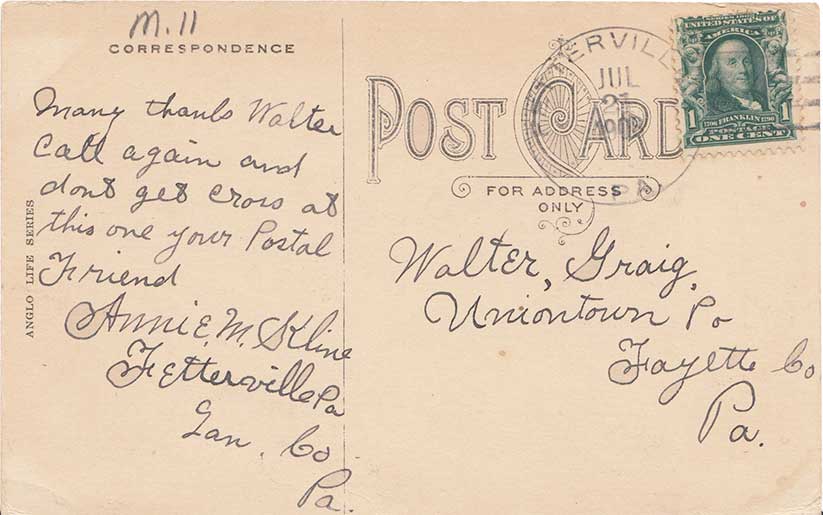 M. 11
CORRESPONDENCE
Many thanks Walter
Call again and
dont get cross at
this one your Postal
Friend
Annie. M. Kline
Fetterville Pa
Lan. Co
Pa.
ANGLO LIFE SERIES
POST CARD
FOR ADDRESS
ONLY
TERVILL
JUL
21
PA
SERIES 1902
UNITED STATES OF
AMERICA
1 1
1706 FRANKLIN 1790
POSTAGE
ONE CENT
Walter, Graig,
Uniontown Po
Fayette Co
Pa.